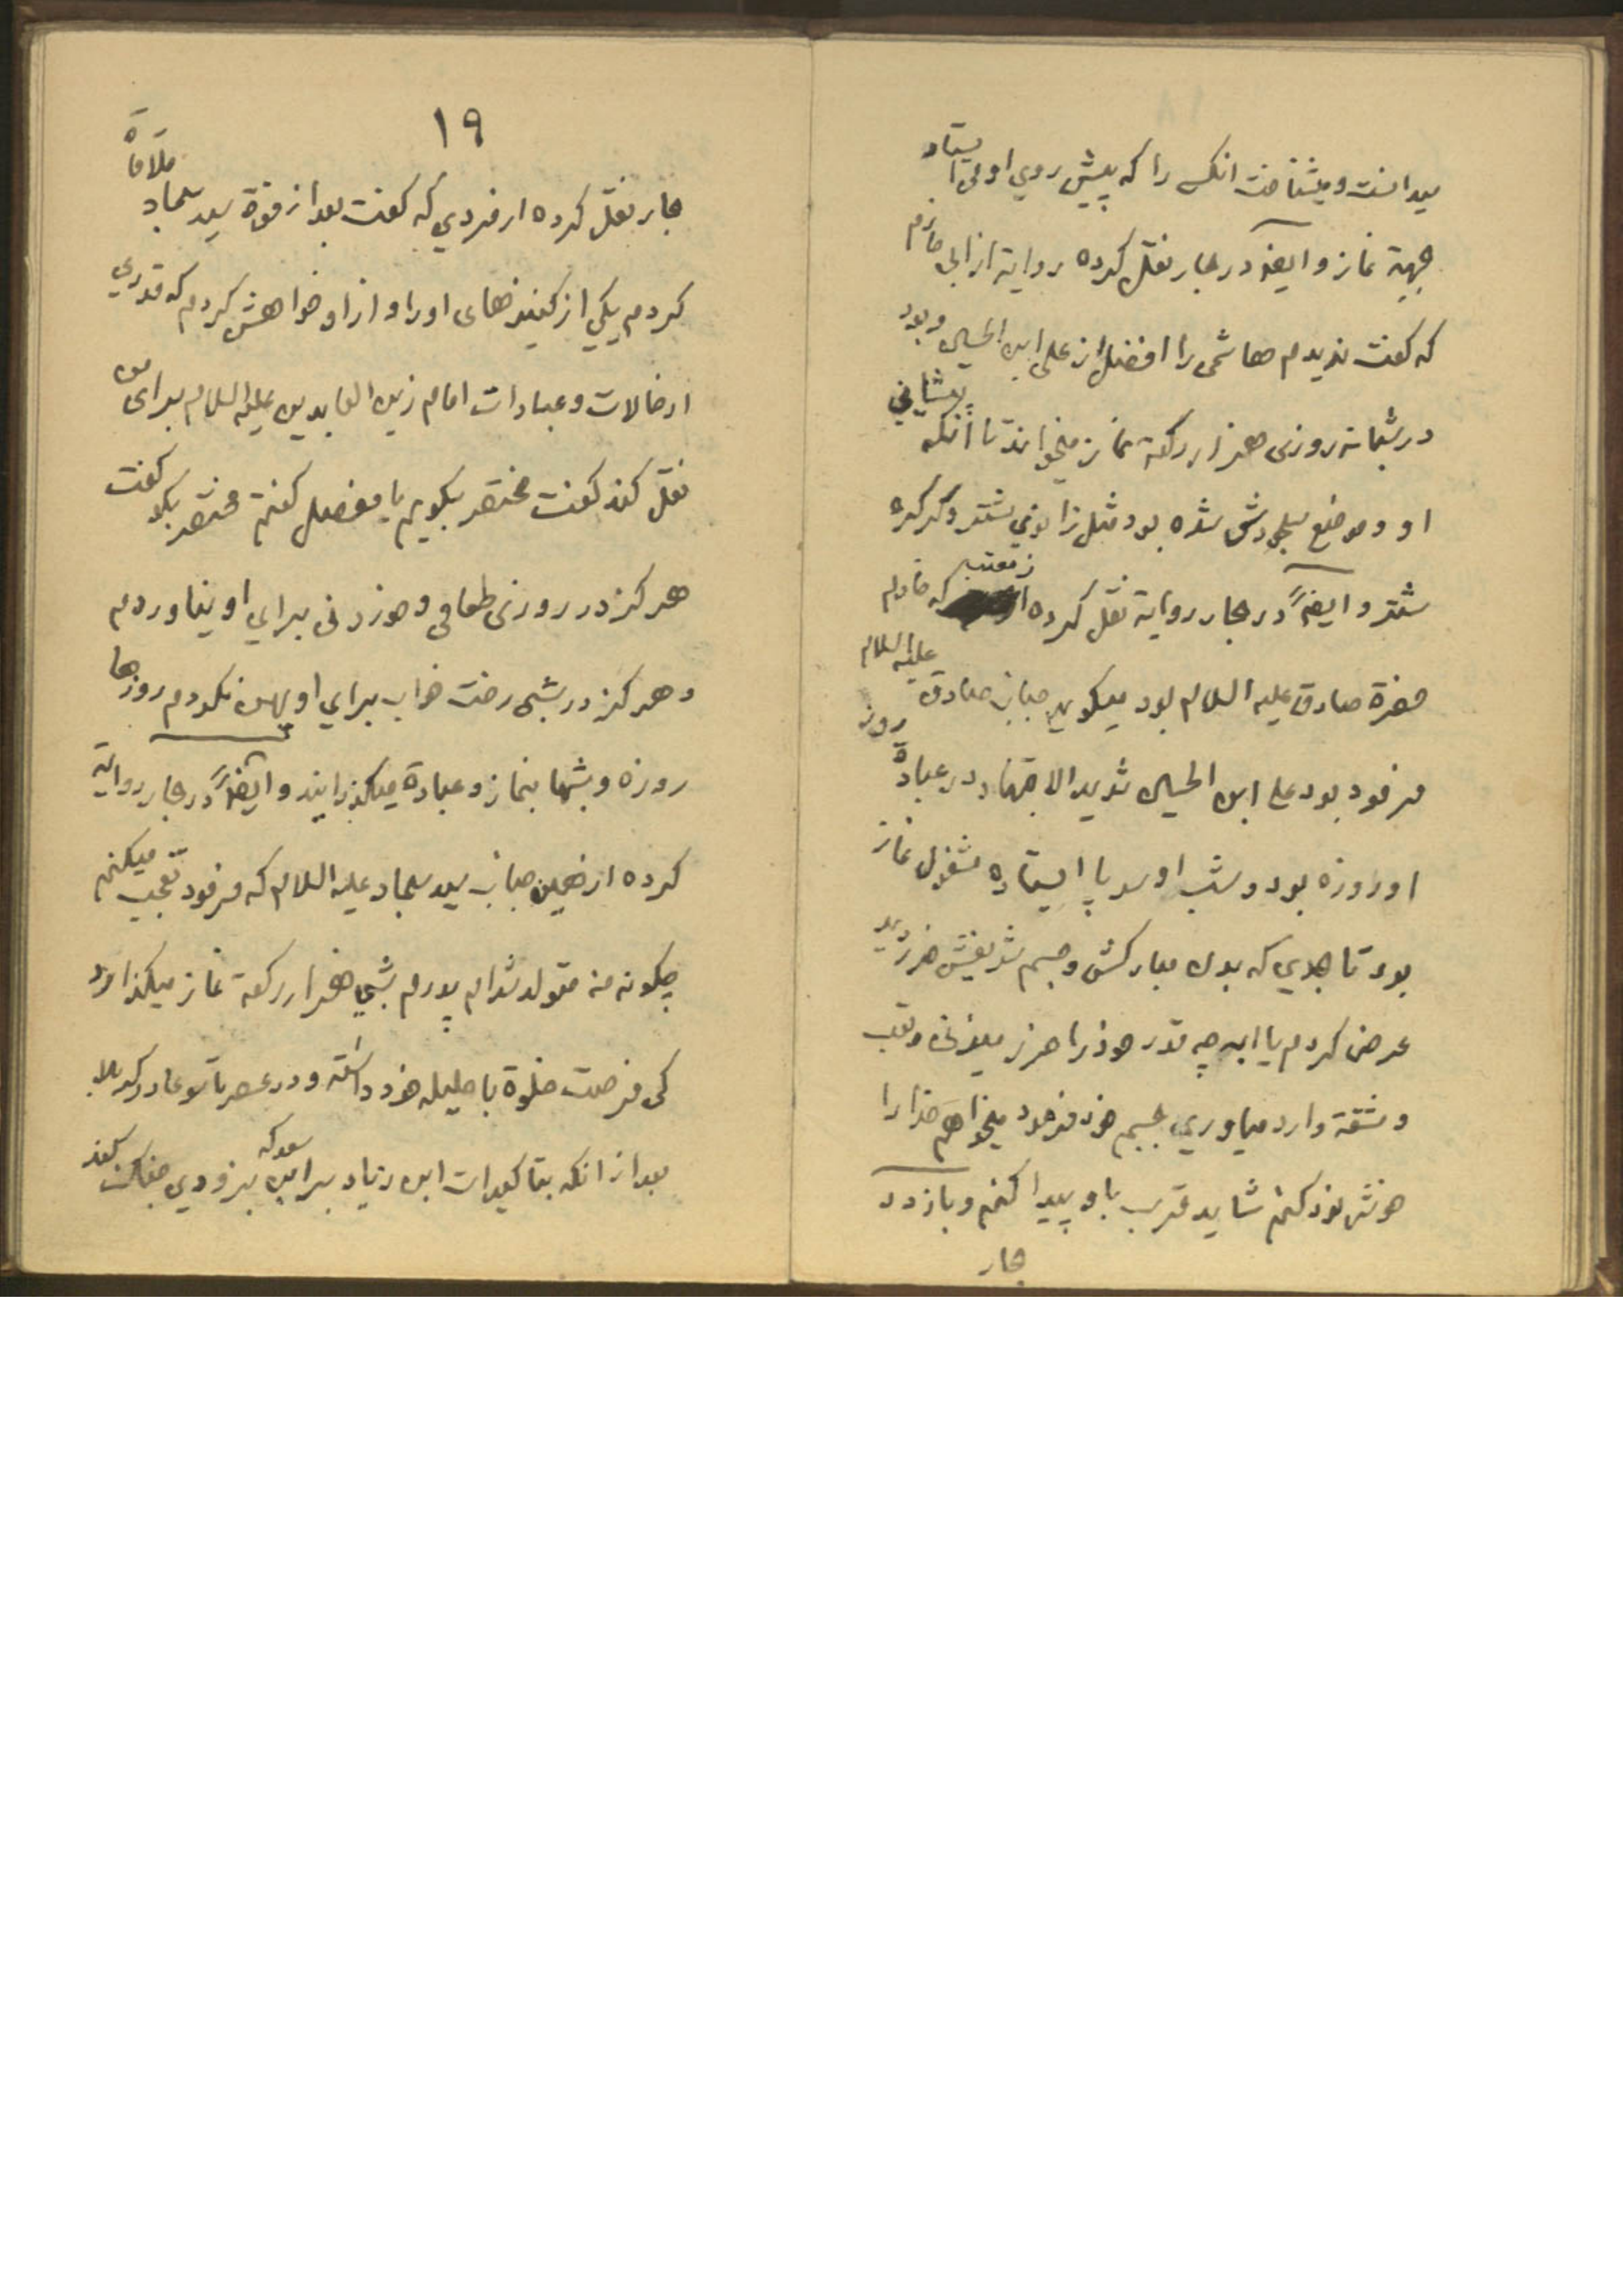 میدانست و میشناخت انکس را که پیش روی او می ایستاد
جهة نماز و ایضا در بحار نقل کرده روایة از ابی حازم
که کفت ندیدم هاشمی را افضل از علی ابن الحسین و بود
در شبانه روزی هزار رکعة نماز میخواند تا انکه پیشانی
او و موضع سجودش شده بود مثل زانوی شتر و کرکره
شتر و ایضاً در بحار روایة نقل کرده از معتب که خادم
حضرة صادق علیه السلام بود میکوید جناب صادق علیه السلام
فرمود بود علی ابن الحسین شدید الاجتهاد در عبادة روز
او روزه بود و شب او سر پا ایستاده مشغول نماز
بود تا بحدی که بدن مبارکش و جسم شریفش ضرر دید
عرض کردم یا ابه چه قدر خود را ضرر میزنی و تعب
و مشقة وارد میاوری بجسم خود فرمود میخواهم خدا را
خوشنود کنم شاید قرب باو پیدا کنم و باز در
بحار
١٩
بحار نقل کرده از فردی که کفت بعد از فوة سید سجاد ملاقاة
کردم یکی از کنیزهای او را و از او خواهش کردم که قدری
از حالات و عبادات امام زین العابدین علیه السلام برای من
نقل کند کفت مختصر بکویم یا مفصل کفتم مختصر بکو کفت
هرکز در روزی طعامی و خوردنی برای او نیاوردم
و هرکز در شبی رخت خواب برای او پهن نکردم روزها
روزه و شبها بنماز و عبادة میکذرانید و ایضاً در بحار روایة
کرده از همین جناب سید سجاد علیه السلام که فرمود تعجب میکنم
چکونه من متولد شدام پدرم شبی هزار رکعة نماز میکذارد
کی فرصت خلوة با حلیله خود داشته و در عصر تاسوعا در کربلا
بعد از انکه بتاکیدات ابن زیاد بر ابن سعد که بزودی جنک کند